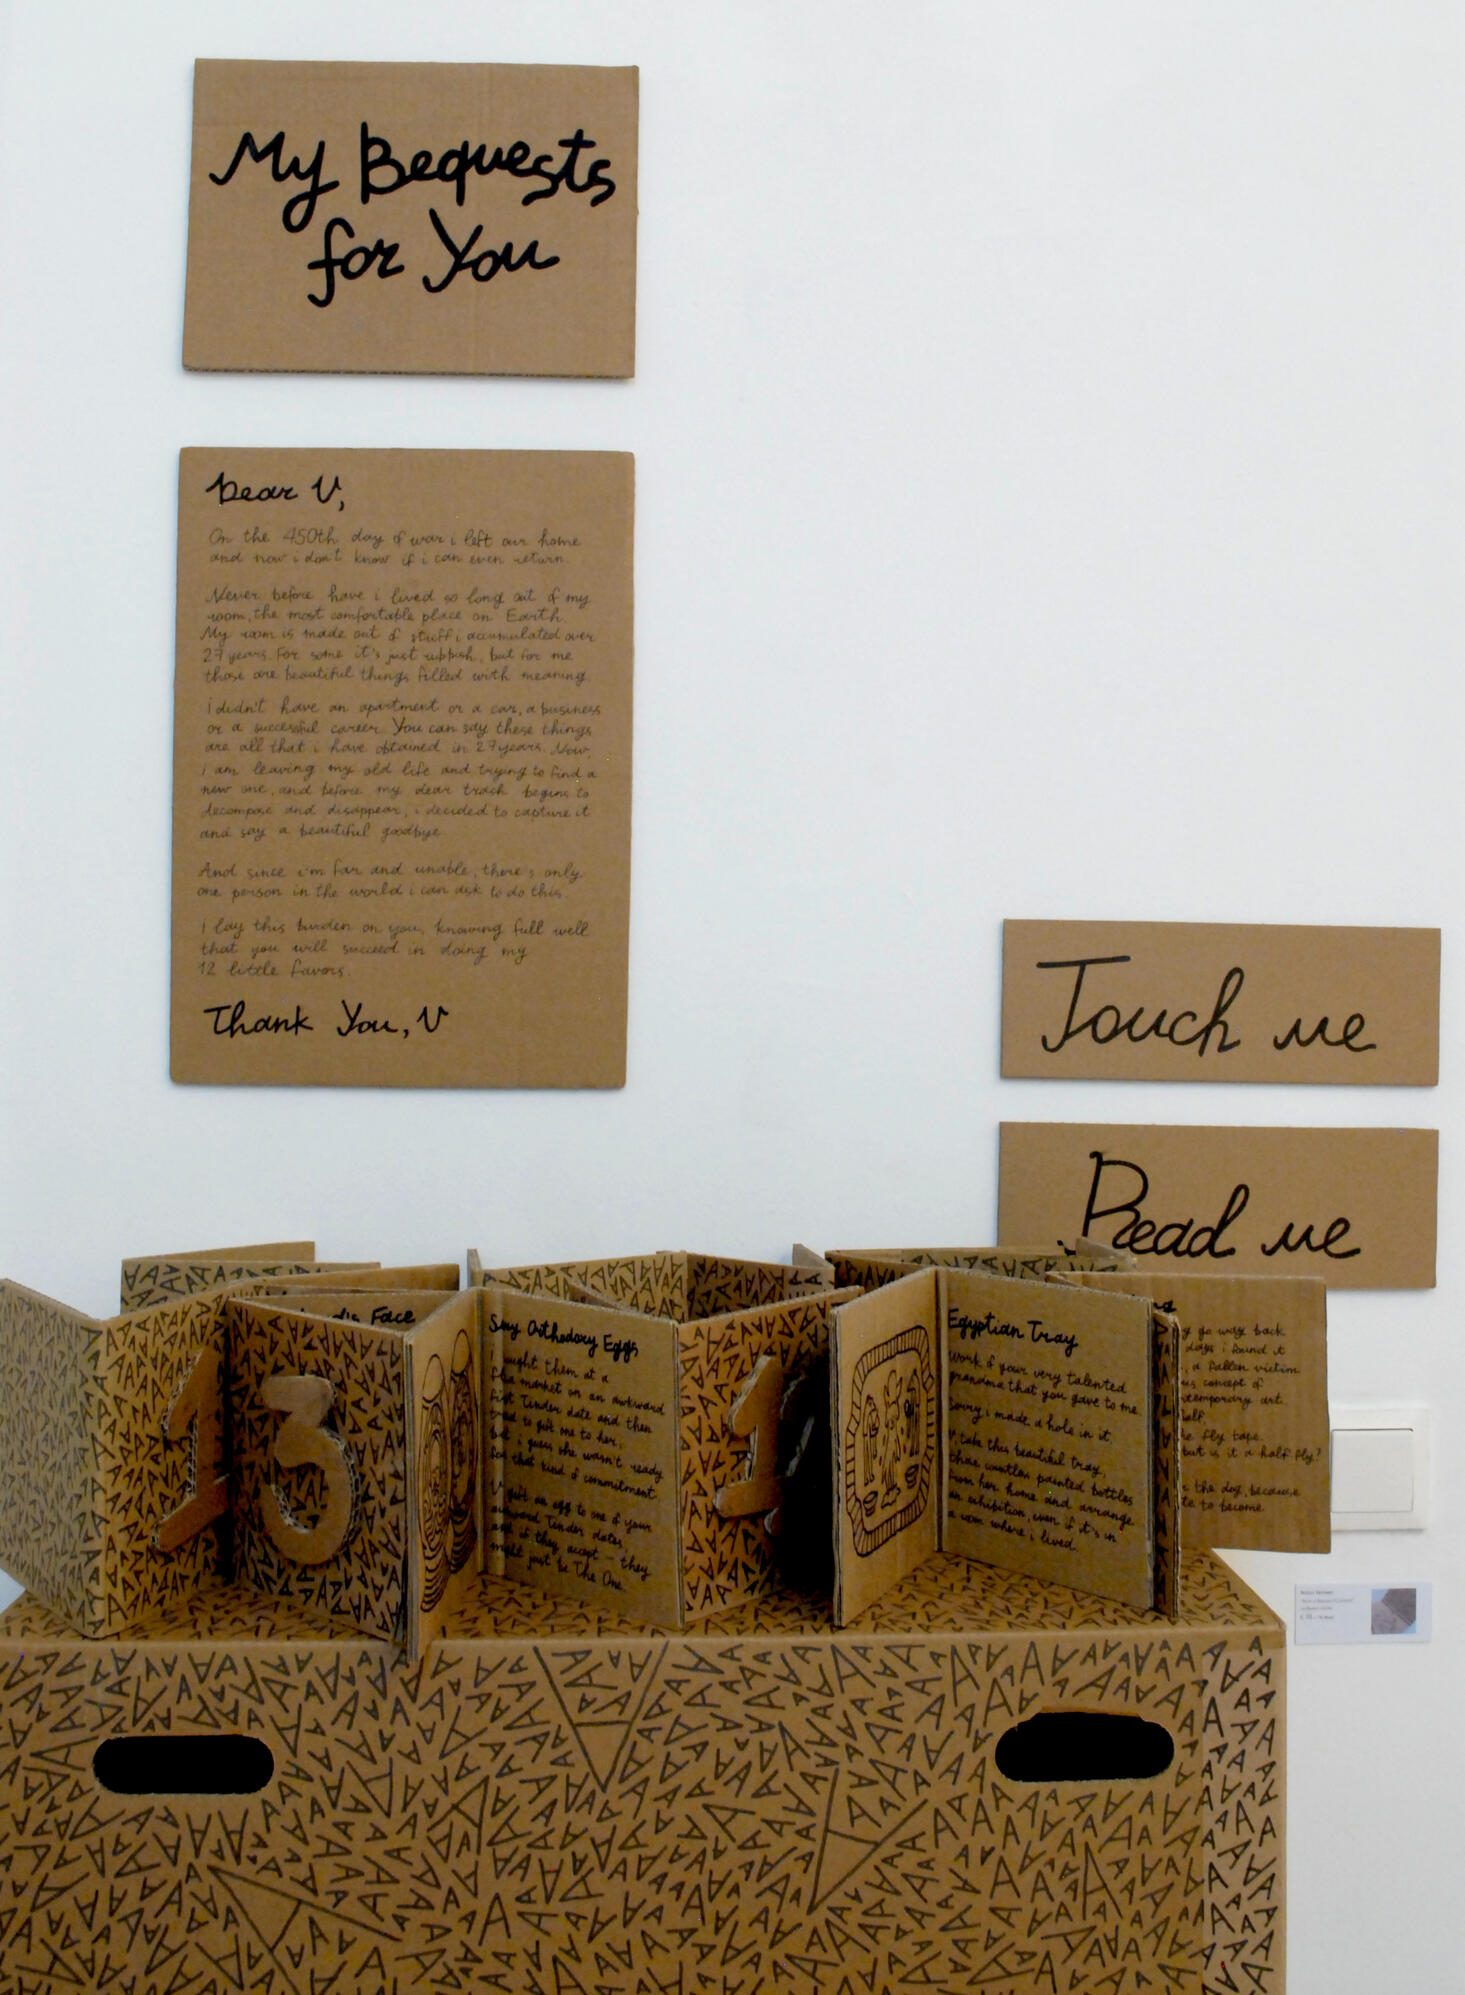 My Bequests
for You
Dear V,
On the 450th day of war i left our home
and now i don't know if i can even return.
Never before have i lived so long out of my
room, the most comfortable place on Earth.
My room is made out of stuff i accumulated over
27 years. For some it's just rubbish, but for me
those are beautiful things filled with meaning.
i didn't have an apartment or a car, a business
or a successful career. You can say these things
are all that i have obtained in 27 years. Now,
i am leaving my old life and trying to find a
new one, and before my dear trash begins to
decompose and disappear, i decided to capture it
and say a beautiful goodbye.
And since i'm far and unable, there's only
one person in the world i can ask to do this.
i lay this burden on you, knowing full well
that you will succeed in doing my
12 little favors.
Thank You, V
Touch me
Read me
Face
Sexy Orthodoxy Eggs
i bought them at a
flea market on an awkward
first Tinder date and then
tried to gift one to her,
but i guess she wasn't ready
for that kind of commitment.
V, gift an egg to one of your
awkward Tinder dates,
and if they accept – they
might just be The One.
Egyptian Tray
Work of your very talented
grandma that you gave to me.
Sorry i made a hole in it.
V, take this beautiful tray,
those countless painted bottles
from her home and arrange
an exhibition, even if it's in
a room where i lived.
go way back
days i found it
a fallen victim
concept of
contemporary art.
half.
fly tape.
but is it a half fly?
the dog, because
to become